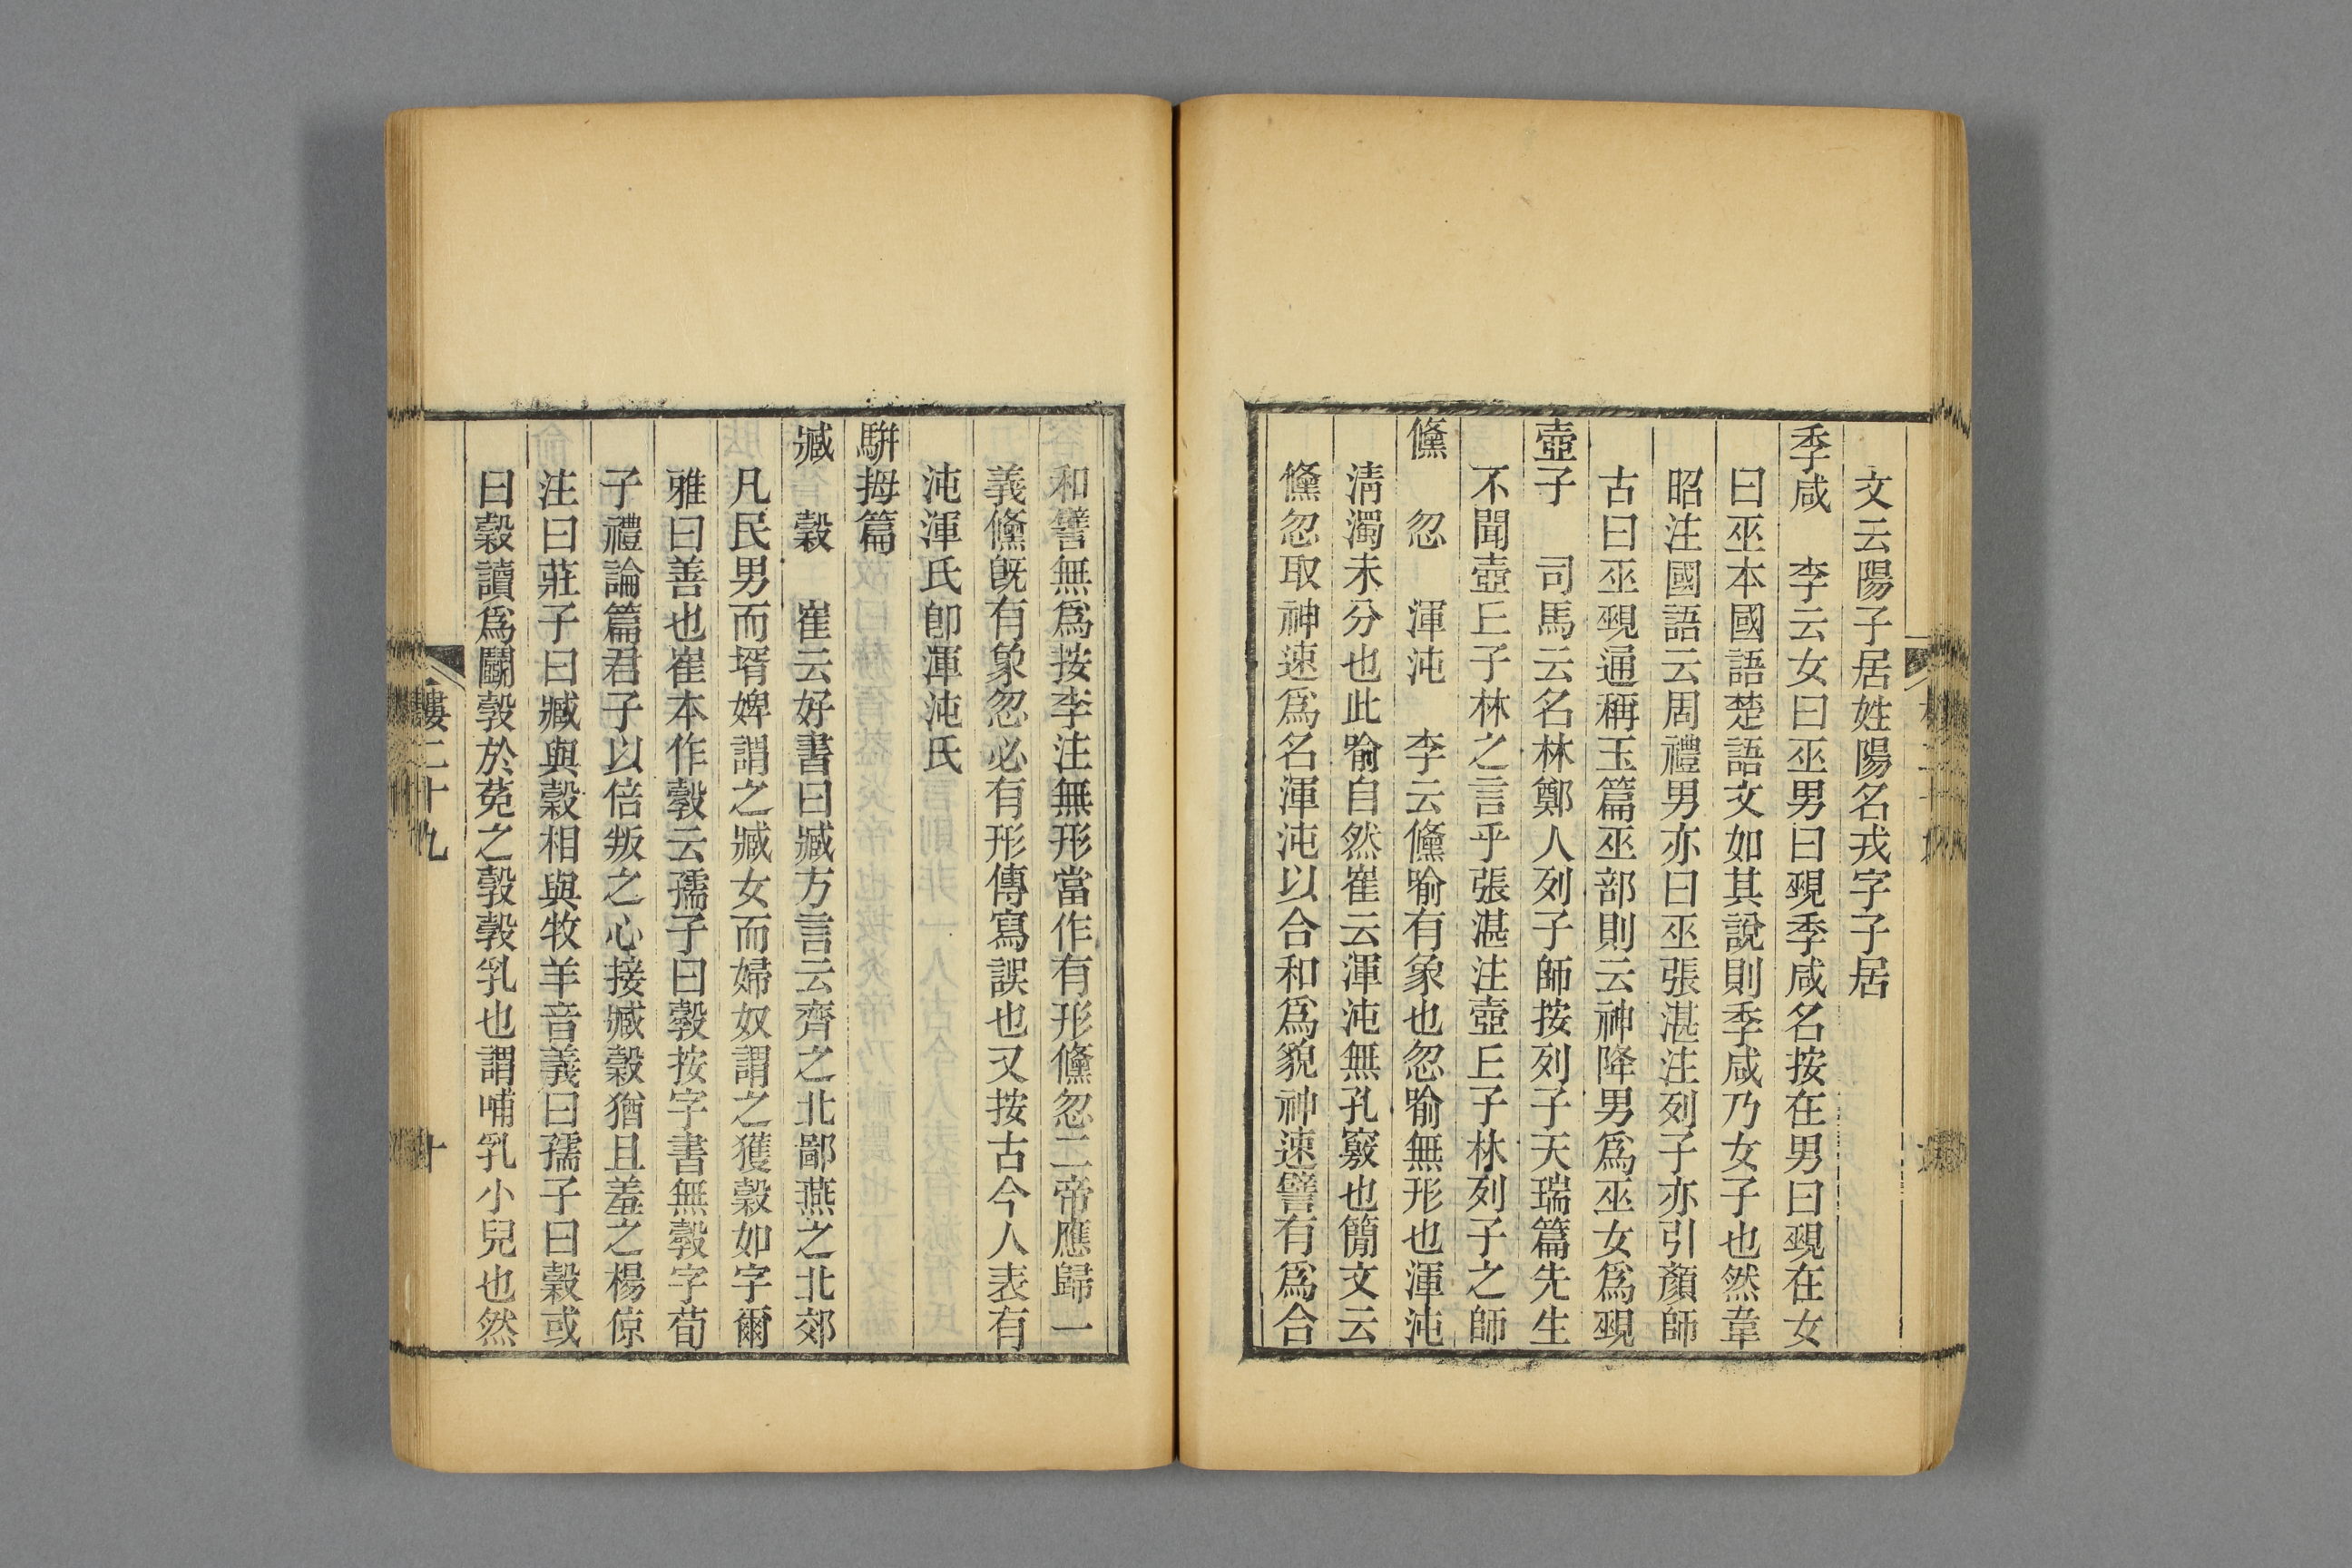 文云陽子居姓陽名戎字子居
季咸　李云女曰巫男曰覡季咸名按在男曰覡在女
曰巫本國語楚語文如其說則季咸乃女子也然韋
昭注國語云周禮男亦曰巫張湛注列子亦引顏師
古曰巫覡通稱玉篇巫部則云神降男爲巫女爲覡
壺子　司馬云名林鄭人列子師按列子天瑞篇先生
不聞壺丘子林之言乎張湛注壺丘子林列子之師
儵　忽　渾沌　李云儵喻有象也忽喻無形也渾沌
清濁未分也此喻自然崔云渾沌無孔竅也簡文云
儵忽取神速爲名渾沌以合和爲貌神速譬有爲合
和譬無爲按李注無形當作有形儵忽二帝應歸一
義儵既有象忽必有形傳寫誤也又按古今人表有
沌渾氏卽渾沌氏
騈拇篇
臧　穀　崔云好書曰臧方言云齊之北鄙燕之北郊
凡民男而壻婢謂之臧女而婦奴謂之獲穀如字爾
雅曰善也崔本作㝅云孺子曰㝅按字書無㝅字荀
子禮論篇君子以倍叛之心接臧穀猶且羞之楊倞
注曰莊子曰臧與穀相與牧羊音義曰孺子曰穀或
曰穀讀爲鬭㝅於菟之㝅㝅乳也謂哺乳小兒也然
二十九
十